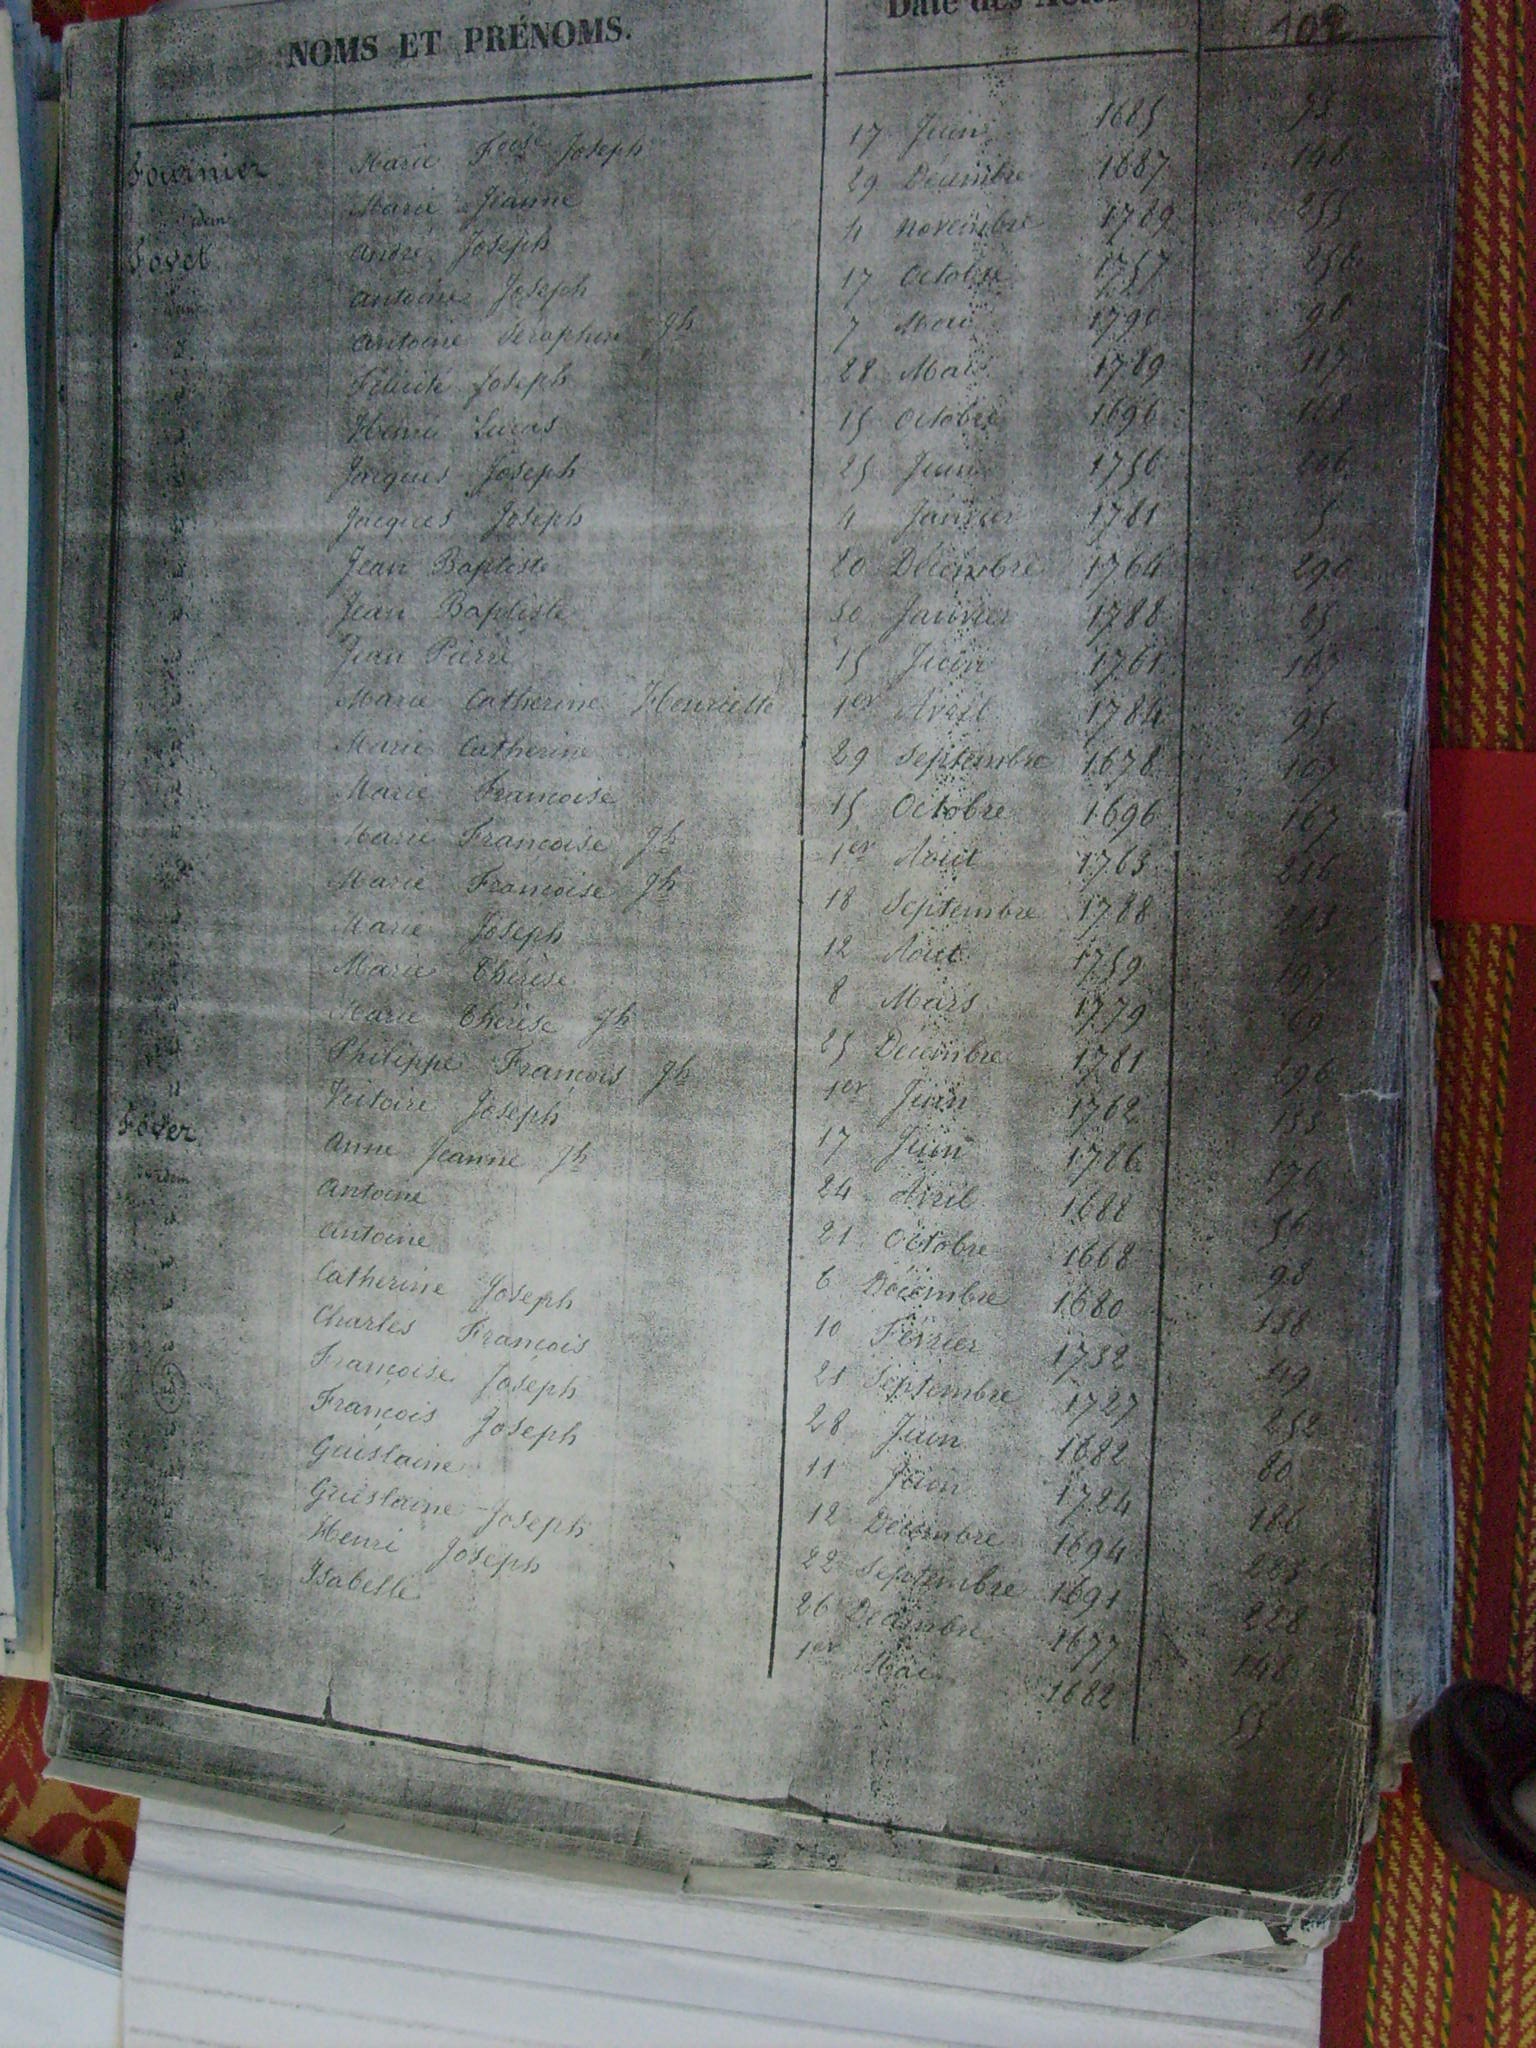 NOMS ET PRÉNOMS. Date des 102
Fournier Marie Foise Joseph 17 Juin 1685 93
idem Marie Jeanne 29 Décembre 1687 148
Fovet André Joseph 4 novembre 1789 255
Antoine Joseph 17 Octobre 1757 256
id Antoine Séraphin Jh 7 Mai 1790 98
id Félicité Joseph 28 Mai 1789 117
id Henri Lucas 15 Octobre 1696 168
id Jacques Joseph 25 Juin 1756 206
id Jacques Joseph 4 Janvier 1781 5
id Jean Baptiste 20 Décembre 1764 290
id Jean Baptiste 30 Janvier 1788 25
id Jean Pierre 15 Juin 1761 167
id Marie Catherine Henriette 1er Avril 1784 95
id Marie Catherine 29 Septembre 1678 107
id Marie Françoise 15 Octobre 1696 167
id Marie Françoise Jh 1er Aout 1763 216
Marie Françoise Jh 18 Septembre 1788 213
id Marie Joseph 12 Aout 1759 197
id Marie Thérèse 8 Mars 1779 69
id Marie Thérèse Jh 25 Décembre 1781 296
id Philippe François Jh 1er Juin 1762 155
id Victoire Joseph 17 Juin 1786 176
Fover Anne Jeanne Jh 24 Avril 1688 56
idem Antoine 21 Octobre 1668 98
id Antoine 6 Décembre 1680 138
id Catherine Joseph 10 Février 1732 49
id Charles François 21 Septembre 1727 252
id Françoise Joseph 28 Juin 1682 80
id François Joseph 11 Juin 1724 186
id Guislaine 12 Décembre 1694
id Guislaine Joseph 22 Septembre 1691 228
id Henri Joseph 26 Décembre 1677 148
Isabelle 1er Mai 1682 55